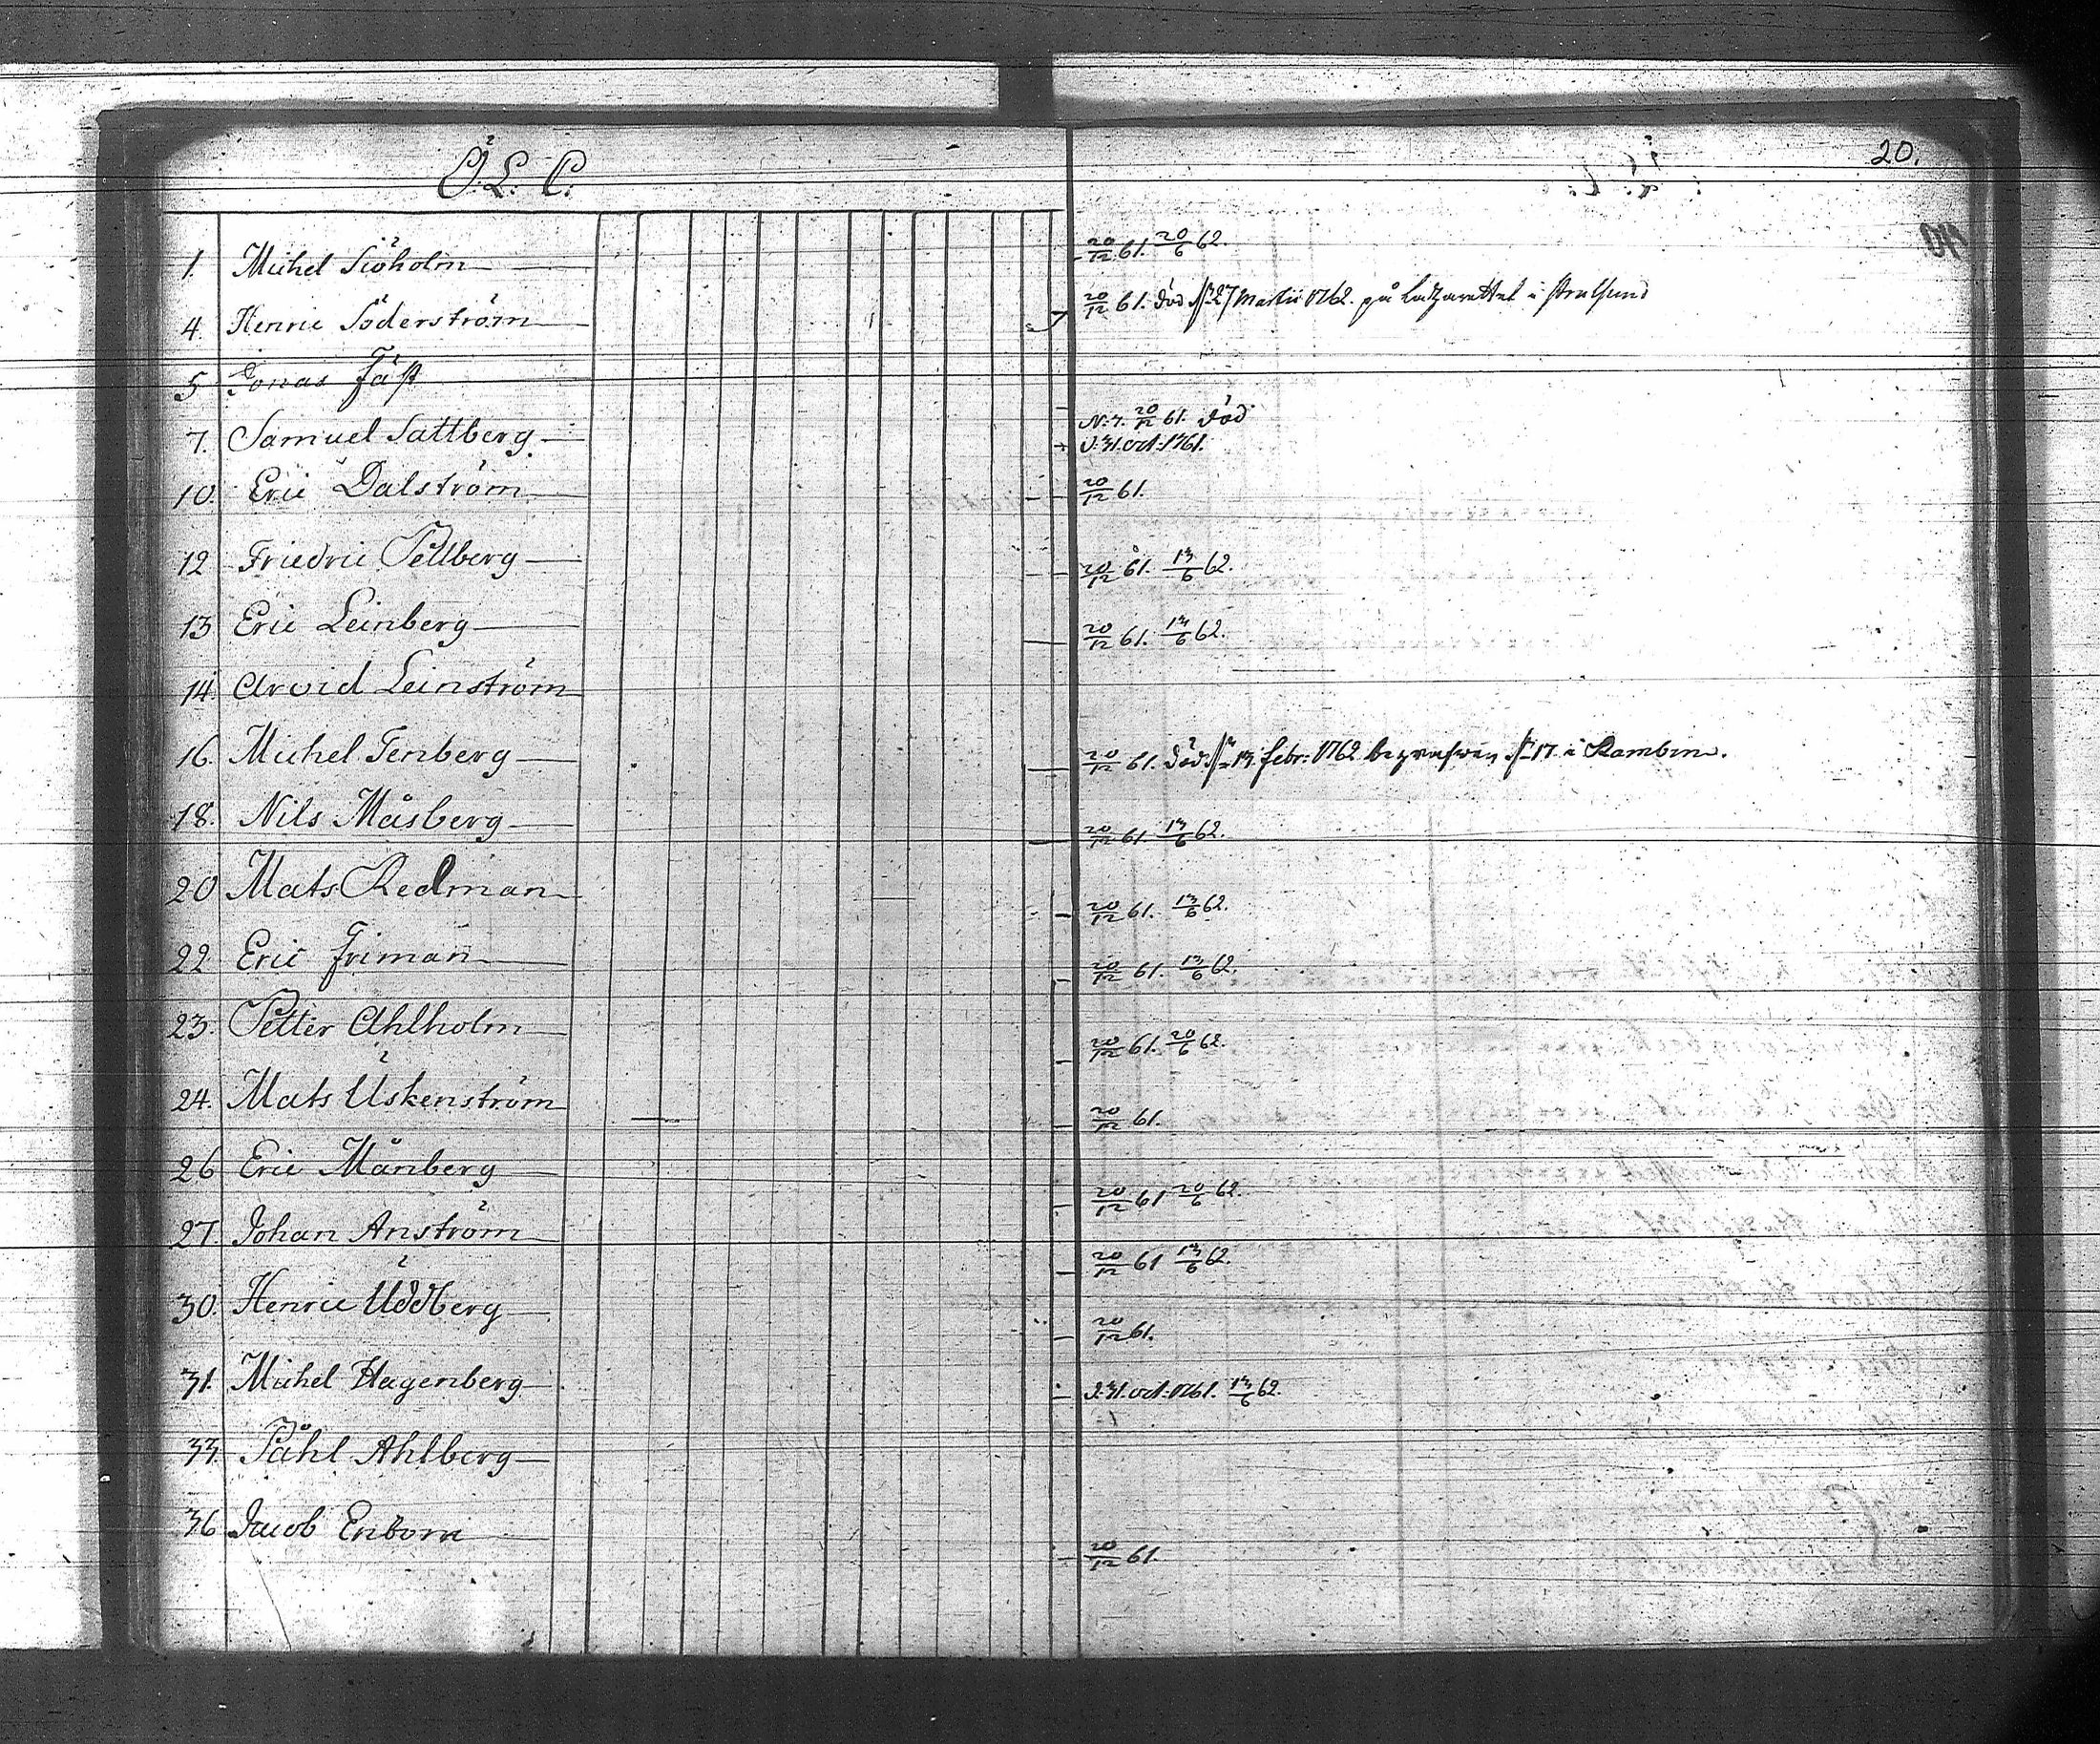 Ö. L. C.
20.
1. Michel Siöholm 20/12 61. 20/6 62.
4. Henric Söderström 20/12 61. död d. 27 Martii 1762. på Latzarettet i Stralsund
5. Jonas Fäst
7. Samuel Sattberg N. 7. 20/12 61. död
d. 31. oct: 1761.
10. Eric Dalström 20/12 61.
12 Friedric Pellberg 20/12 61. 13/6 62.
13 Eric Leinberg 20/12 61. 13/6 62.
14. Arvid Leinström
16. Michel Tenberg 20/12 61. död d. 13. febr: 1762 begrafwen d. 17. i Rambin.
18. Nils Måsberg 20/12 61. 13/6 62.
20 Mats Redman 20/12 61. 13/6 62.
22 Eric Friman 20/12 61. 13/6 62.
23. Petter Ahlholm 20/12 61. 20/6 62.
24. Mats Uskenström 20/12 61.
26 Eric Månberg 20/12 61 20/6 62.
27. Johan Anström 20/12 61 13/6 62.
30. Henric Uddberg 20/12 61.
31. Michel Hagenberg d. 31. oct: 1761. 13/6 62.
33. Påhl Ahlberg
36 Jacob Enbom 20/12 61.